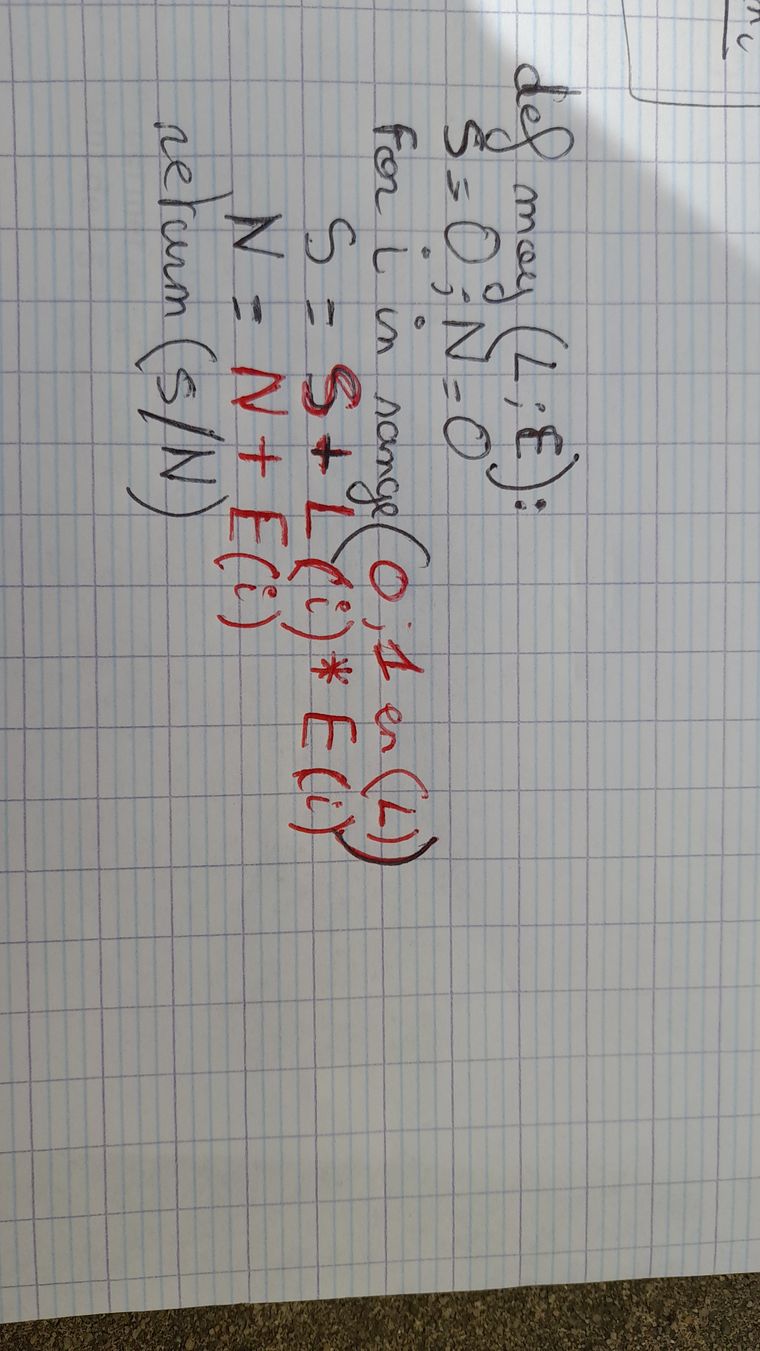 def moy (L ; E) :
S = 0 ; N = 0
For i in range (0 ; 1 en (L))
S = S + L (i) * E (i)
N = N + E (i)
return (S / N)